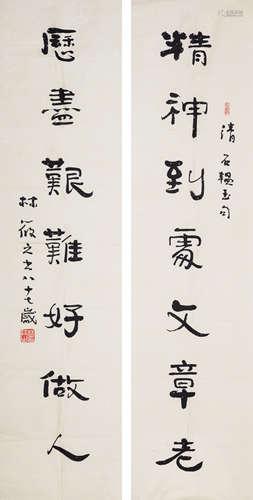 精神到處文章老
清 石韞玉句
歷盡艱難好做人
林筱之书八十七歲